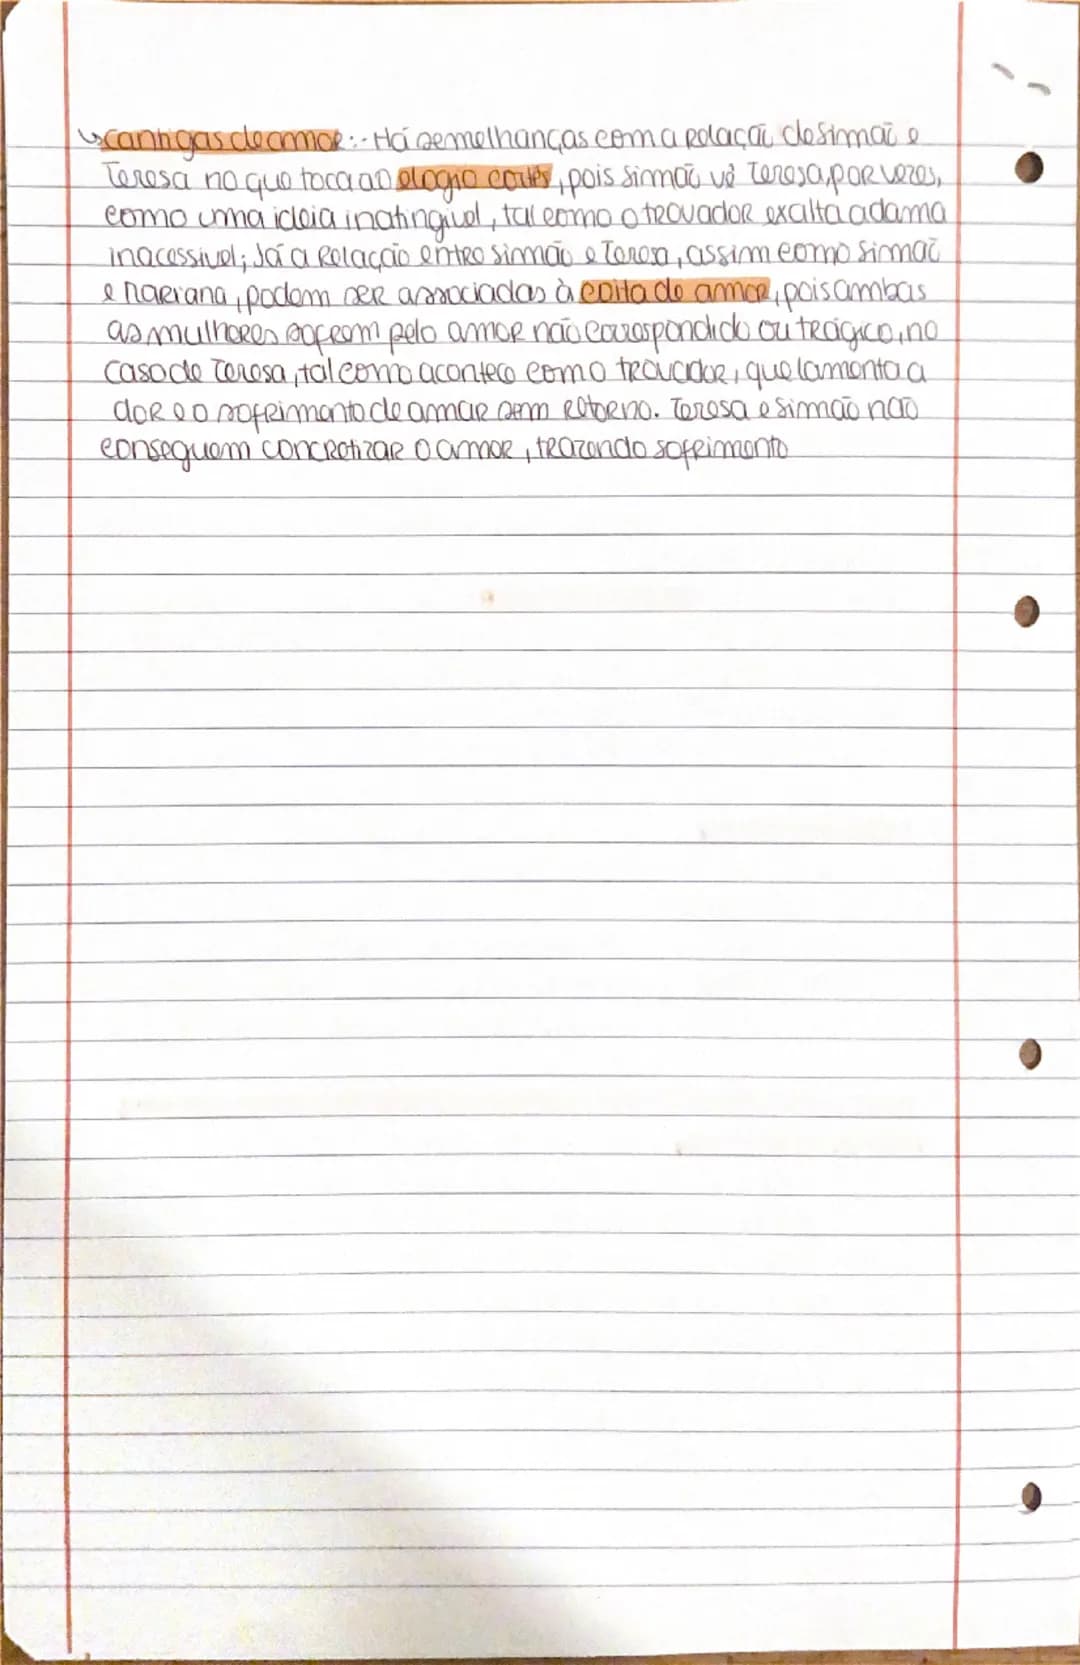 ↳cantigas de amor:- Há semelhanças com a relação de Simão e
Teresa no que toca ao elogio cortês, pois Simão vê Teresa, por vezes,
como uma ideia inatingivel, tal como o trovador exalta a dama
inacessivel; Já a Relação entre Simão e Teresa, assim como Simão
e Mariana, podem ser associadas à coita de amor, pois ambas
as mulheres sofrem pelo amor não correspondido ou trágico, no
caso de Teresa, tal como acontece com o trovador, que lamenta a
dor e o sofrimento de amar sem retorno. Teresa e Simão não
conseguem concretizar o amor, trazendo sofrimento